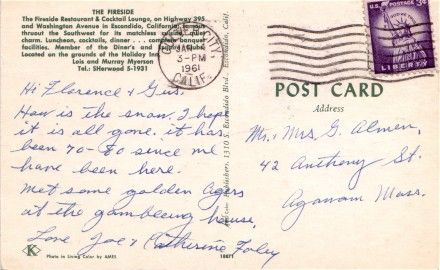 THE FIRESIDE
The Fireside Restaurant & Cocktail Lounge, on Highway 395
and Washington Avenue in Escondido, California,
throuout the Southwest for its matchless
charm. Luncheon, cocktails, dinner ... complete banquet
facilities. Member of the Diner's and
Located on the grounds of the Holiday Inn.
Lois and Murray Myerson
Tel.: SHerwood 5-1931
CITY,
JAN
3-PM
1961
CALIF.
3¢
LIBERTY
POST CARD
Address
Hi Florence & Gus.
How is the snow. I hope
it is all gone. it has
been 70-80 since we
have been here.
met some golden agers
at the gambleing house.
Love Joe & Catherine Foley
Mr. & Mrs G. Almen,
42 Anthony St.
Agawam Mass.
1310 E. Escondido Blvd., Escondido, Calif.
K
Photo in Living Color by AMES